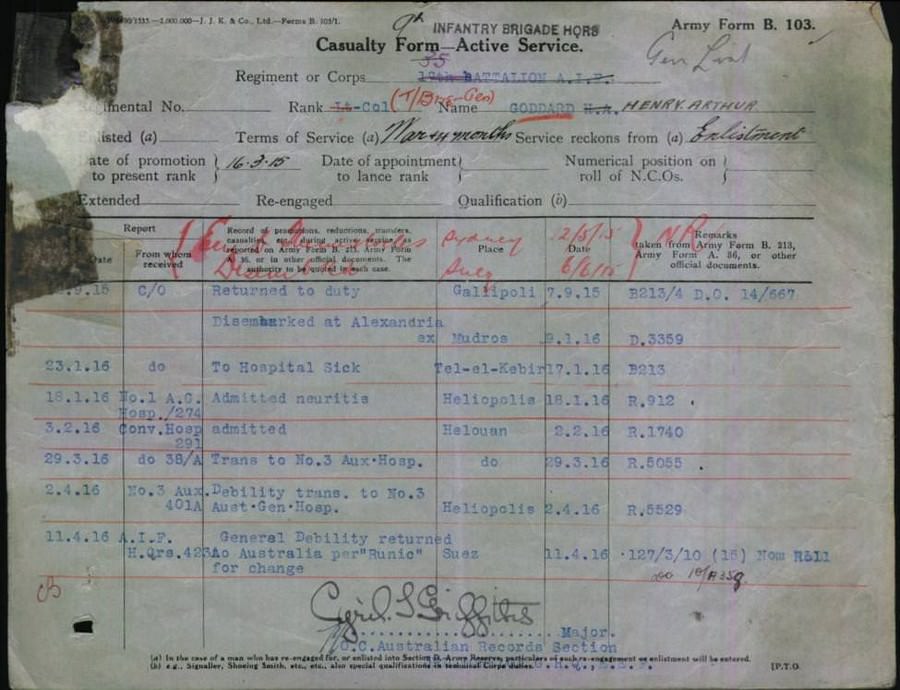 9th INFANTRY BRIGADE HQRS
Army Form B. 103.
Casualty Form—Active Service.
Gen List
35
Regiment or Corps 18th BATTALION A.I.F.
Regimental No. Rank Lt-Col (T/Brig-Gen) Name GODDARD H.A. HENRY ARTHUR
Enlisted (a) Terms of Service (a) War & 4 months Service reckons from (a) Enlistment
Date of promotion to present rank 16.3.15 Date of appointment to lance rank Numerical position on roll of N.C.Os.
Extended Re-engaged Qualification (b)
Report
Date From whom received
Record of promotions, reductions, transfers, casualties, etc., during active service, as reported on Army Form B. 213, Army Form A. 36, or in other official documents. The authority to be quoted in each case.
Place
Date
Remarks taken from Army Form B. 213, Army Form A. 36, or other official documents.
Sydney 12/5/15 N R
Suez 6/6/15
.9.15 C/O Returned to duty Gallipoli 7.9.15 B213/4 D.O. 14/667
Disembarked at Alexandria
ex Mudros 9.1.16 D.3359
23.1.16 do To Hospital Sick Tel-el-Kebir 17.1.16 B213
18.1.16 No.1 A.G. Admitted neuritis Heliopolis 18.1.16 R.912
Hosp./274
3.2.16 Conv.Hosp admitted Helouan 2.2.16 R.1740
291
29.3.16 do 38/A Trans to No.3 Aux.Hosp. do 29.3.16 R.5055
2.4.16 No.3 Aux. Debility trans. to No.3
401A Aust.Gen.Hosp. Heliopolis 2.4.16 R.5529
11.4.16 A.I.F. General Debility returned
H.Qrs.423A to Australia per "Runic" Suez 11.4.16 127/3/10 (15) Nom Roll
for change
Cyril L Griffiths
Major.
O.C. Australian Records Section
(a) In the case of a man who has re-engaged for, or enlisted into Section D. Army Reserve, particulars of such re-engagement or enlistment will be entered.
(b) e.g., Signaller, Shoeing Smith, etc., etc., also special qualifications in technical Corps duties. [P.T.O.